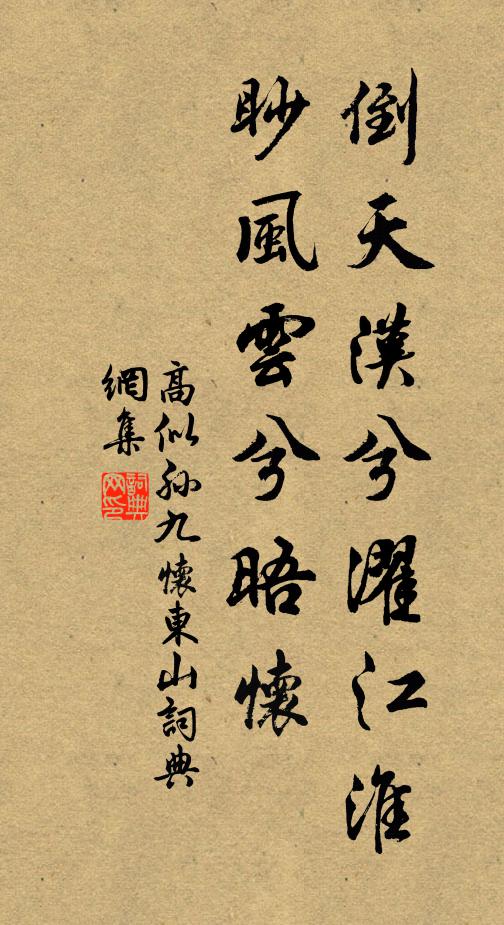 倒天漢兮濯江淮
眇風雲兮晤懷
高似孫九懷東山詞典
網集
詞典
网印